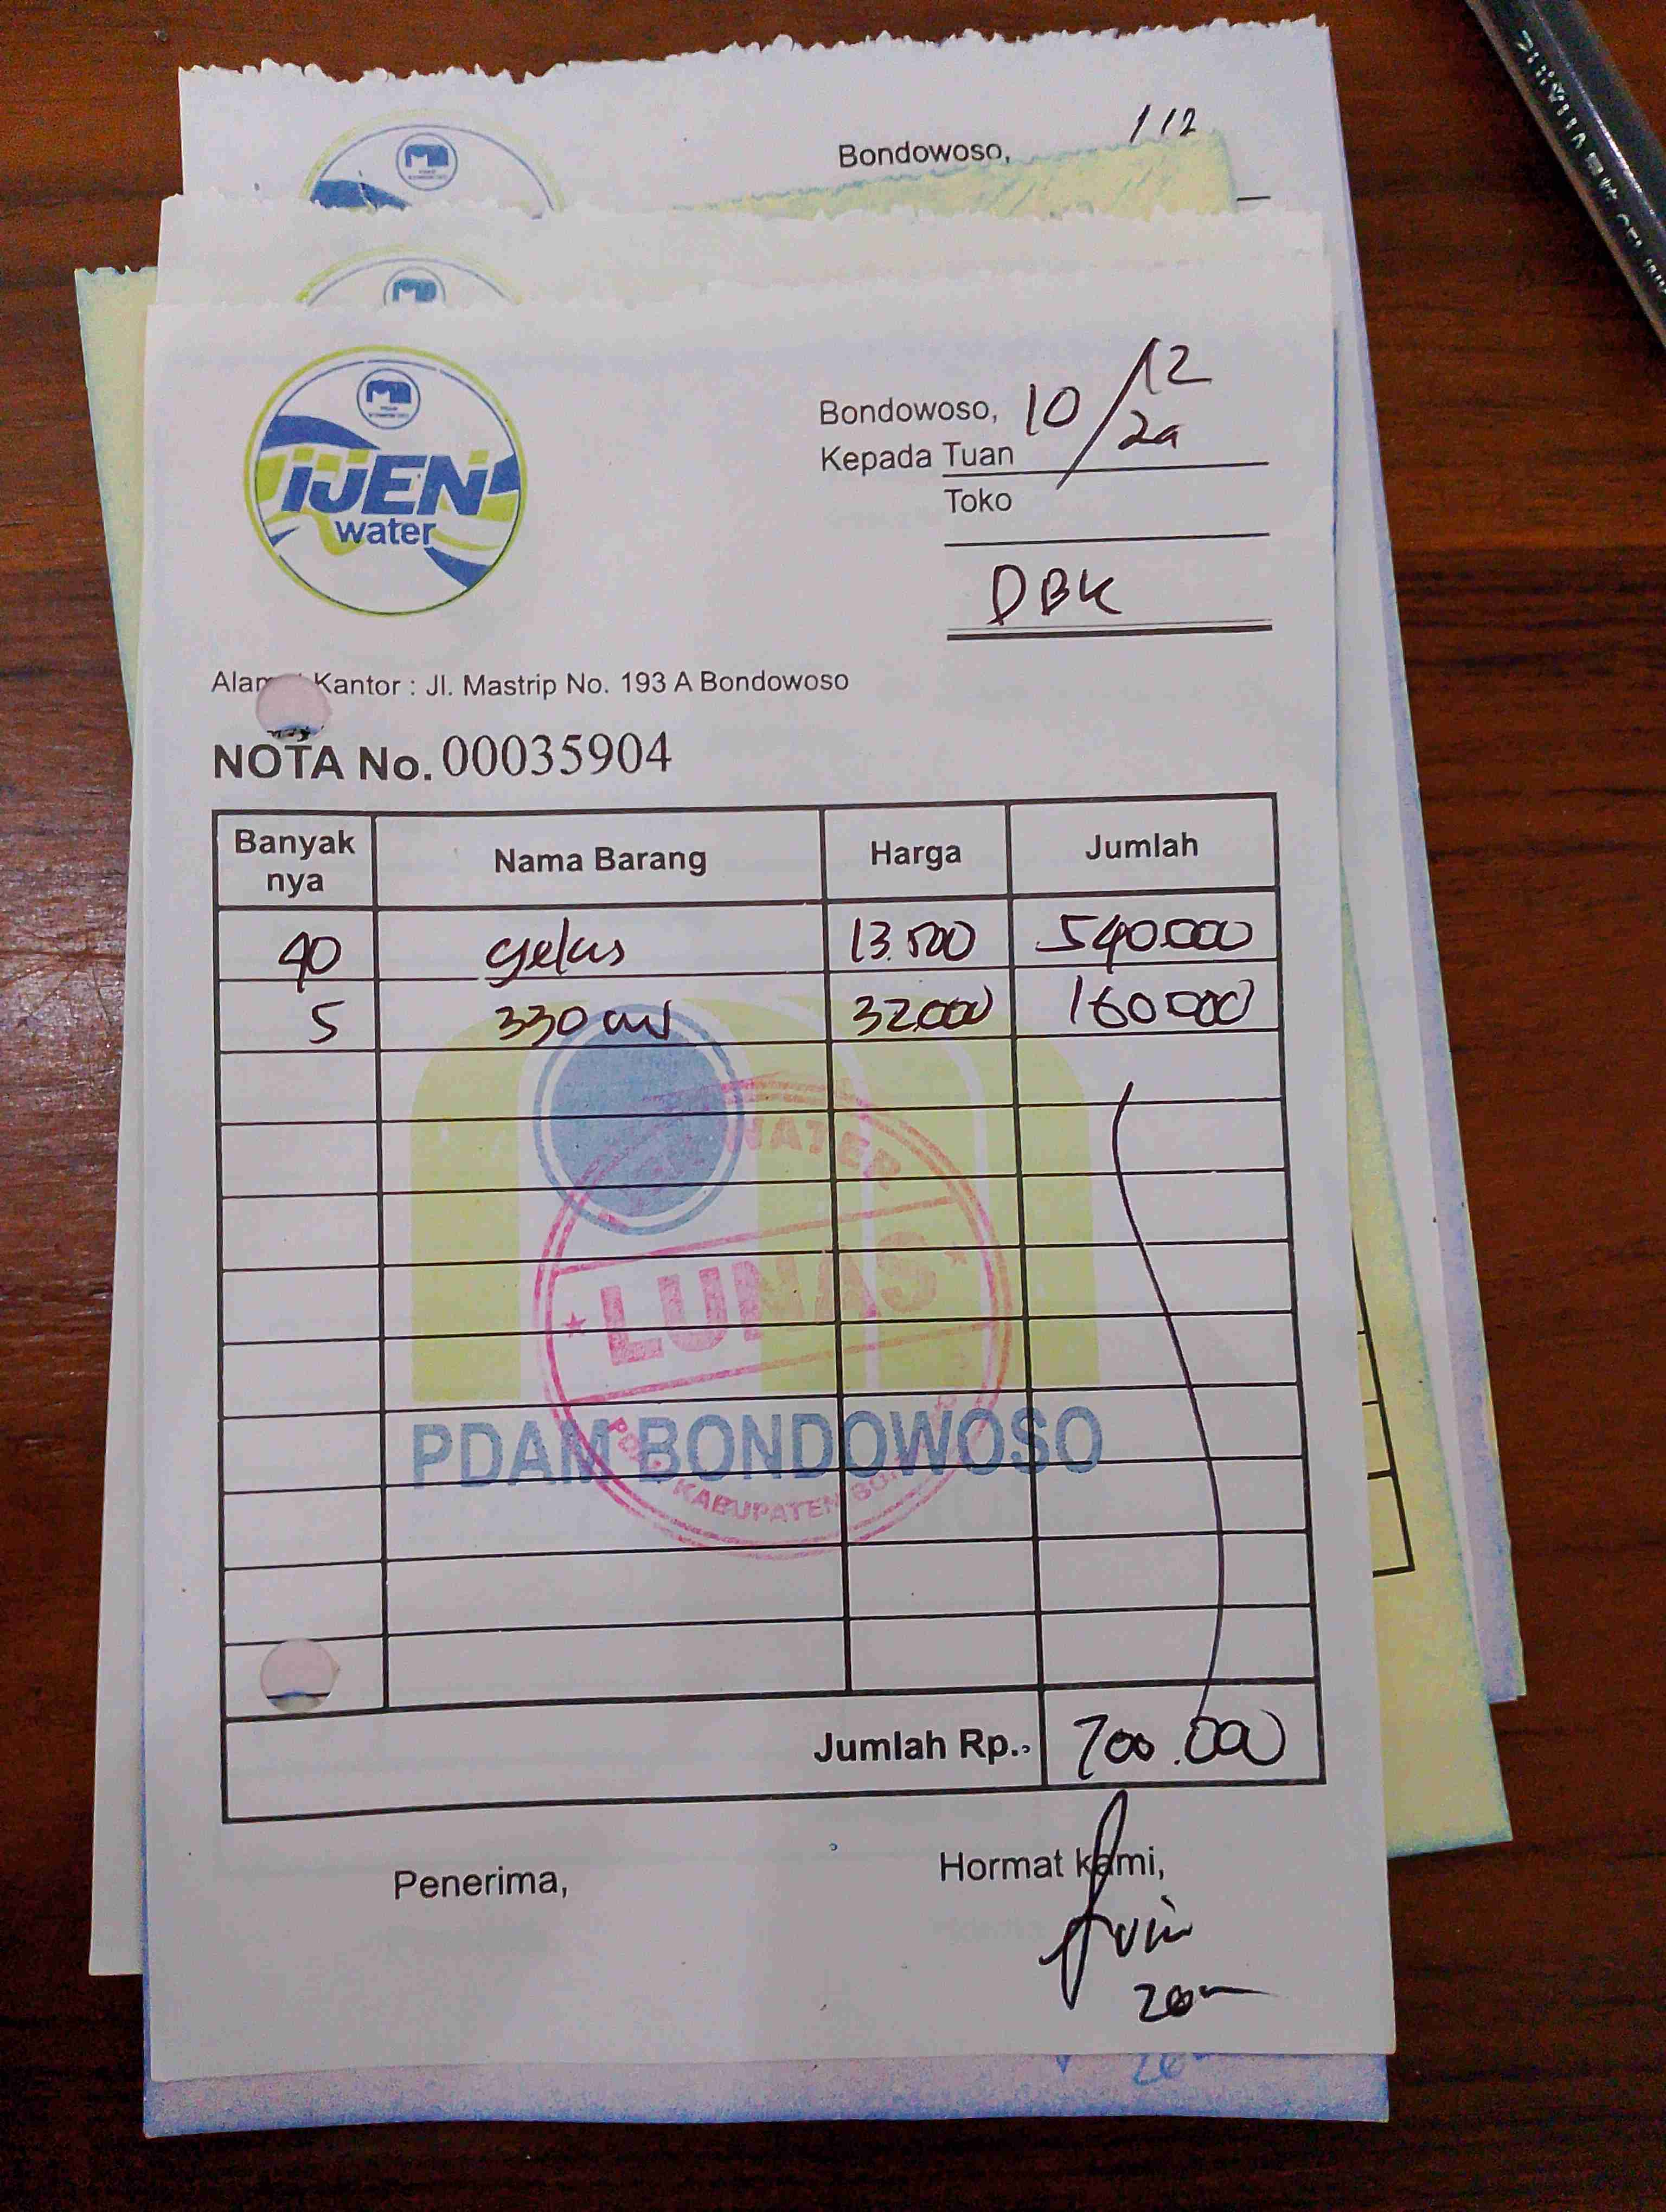 Bondowoso, 1/12
IJEN
water
Bondowoso, 10/12
Kepada Tuan
Toko
DBK
Kantor : Jl. Mastrip No. 193 A Bondowoso
NOTA No. 00035904
Banyak nya Nama Barang Harga Jumlah
40 gelas 13.500 540.000
5 330 ml 32.000 160.000
WATER
LUNAS
PDAM BONDOWOSO
KABUPATEN
Jumlah Rp. 700.000
Penerima, Hormat kami,